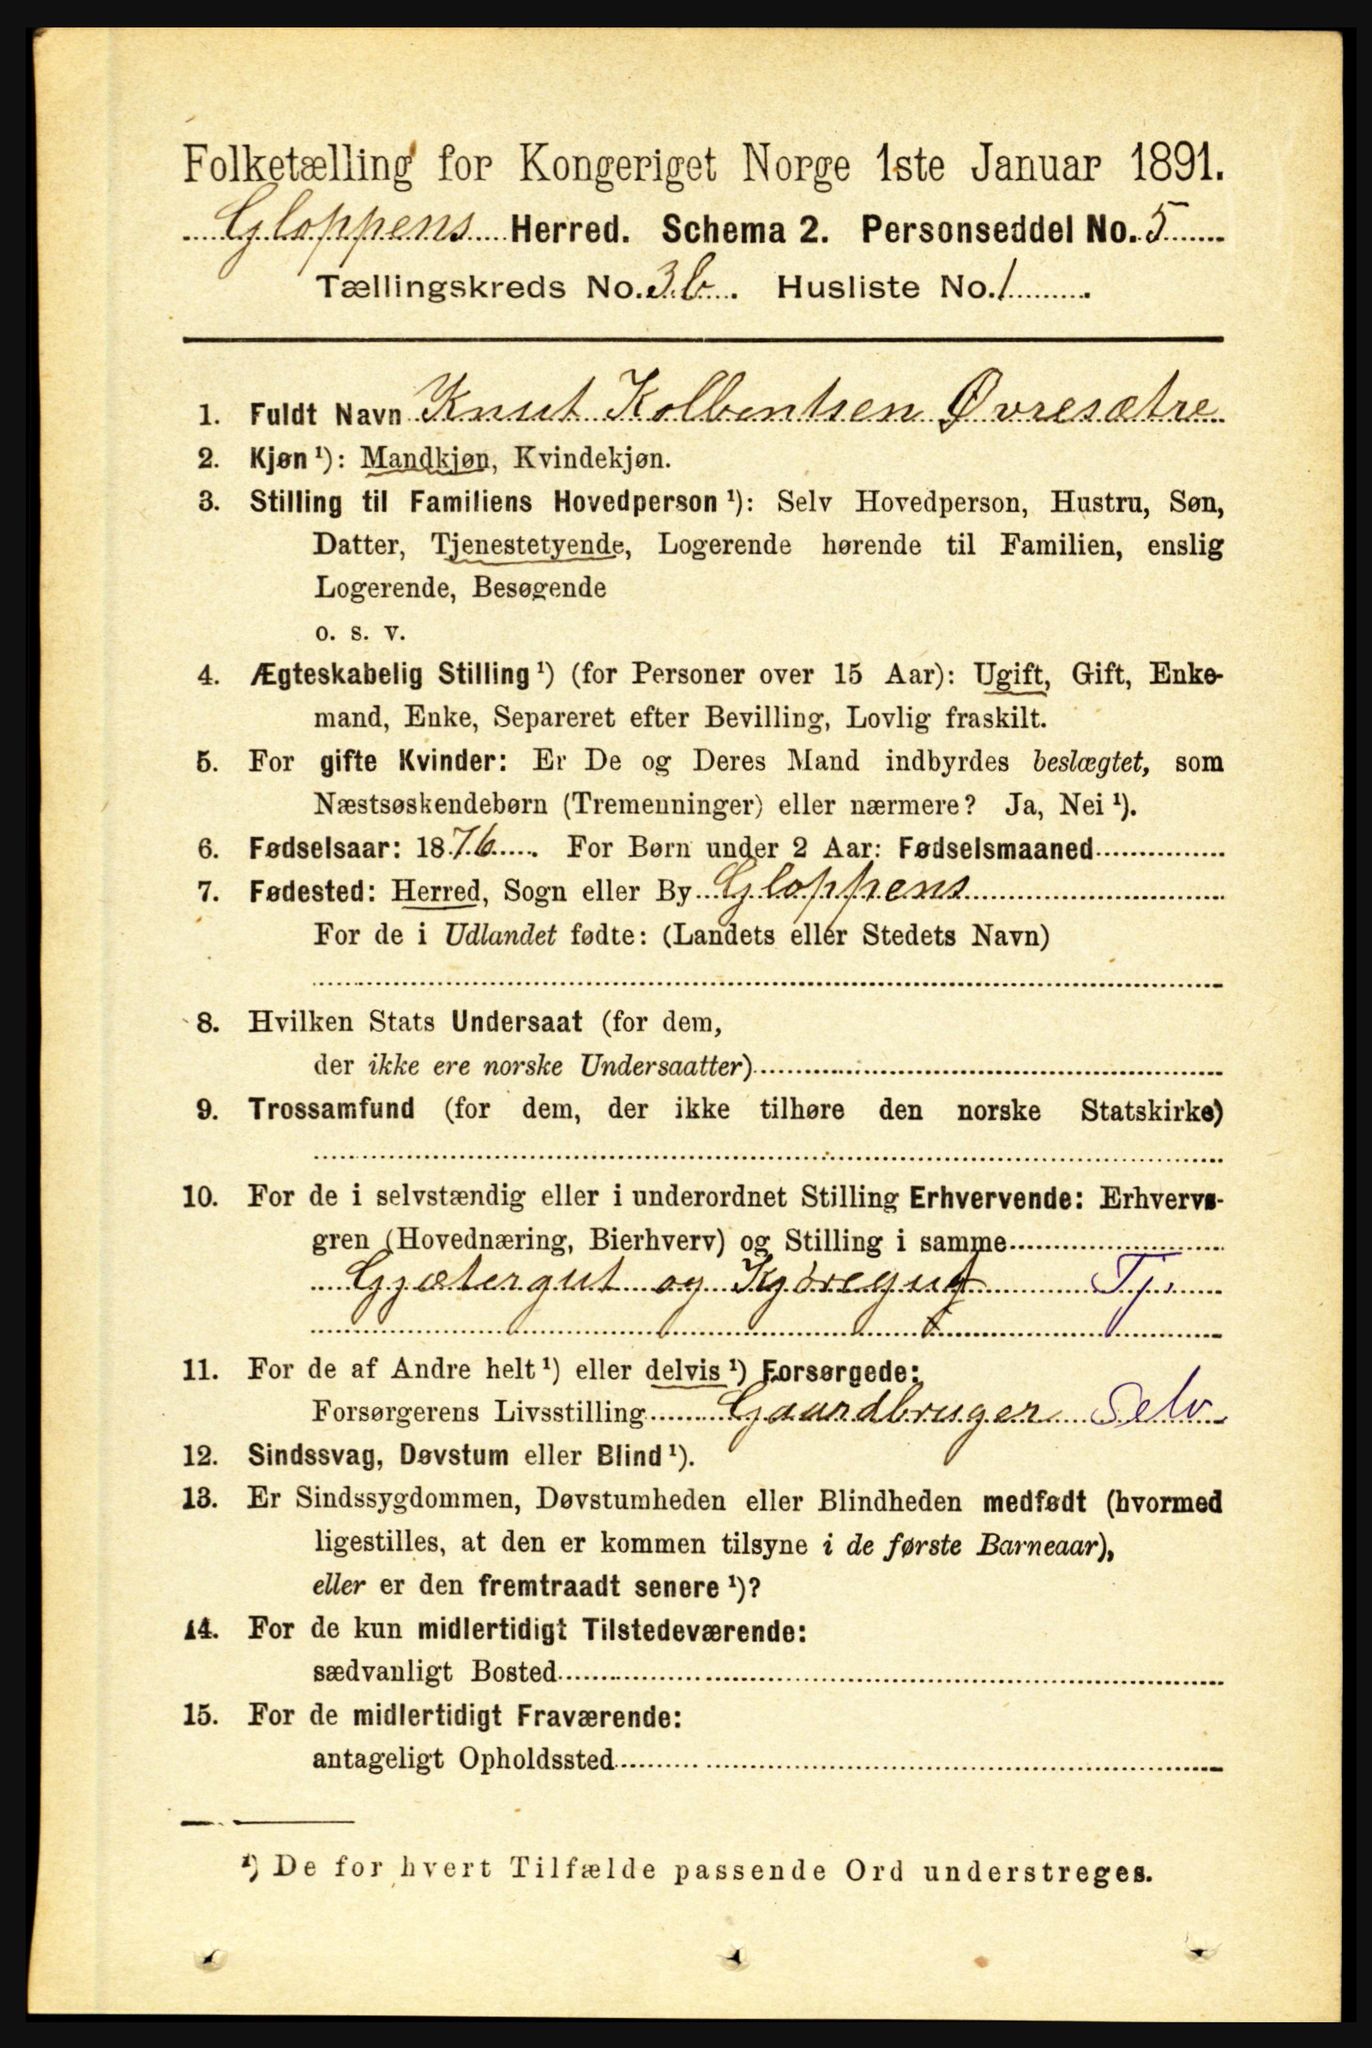 Folketælling for Kongeriget Norge 1ste Januar 1891.
Gloppens Herred. Schema 2. Personseddel No. 5
Tællingskreds No. 3b. Husliste No. 1.
1. Fuldt Navn Knut Kolbentsen Øvresætre
2. Kjøn ¹): Mandkjøn, Kvindekjøn.
3. Stilling til Familiens Hovedperson ¹): Selv Hovedperson, Hustru, Søn,
Datter, Tjenestetyende, Logerende hørende til Familien, enslig
Logerende, Besøgende
o. s. v.
4. Ægteskabelig Stilling ¹) (for Personer over 15 Aar): Ugift, Gift, Enke-
mand, Enke, Separeret efter Bevilling, Lovlig fraskilt.
5. For gifte Kvinder: Er De og Deres Mand indbyrdes beslægtet, som
Næstsøskendebørn (Tremenninger) eller nærmere? Ja, Nei ¹).
6. Fødselsaar: 1876. For Børn under 2 Aar: Fødselsmaaned
7. Fødested: Herred, Sogn eller By Gloppens
For de i Udlandet fødte: (Landets eller Stedets Navn)
8. Hvilken Stats Undersaat (for dem,
der ikke ere norske Undersaatter)
9. Trossamfund (for dem, der ikke tilhøre den norske Statskirke)
10. For de i selvstændig eller i underordnet Stilling Erhvervende: Erhvervs-
gren (Hovednæring, Bierhverv) og Stilling i samme
Gjætergut og Kjøregut Tj.
11. For de af Andre helt ¹) eller delvis ¹) Forsørgede:
Forsørgerens Livsstilling Gaardbruger Selv
12. Sindssvag, Døvstum eller Blind ¹).
13. Er Sindssygdommen, Døvstumheden eller Blindheden medfødt (hvormed
ligestilles, at den er kommen tilsyne i de første Barneaar),
eller er den fremtraadt senere ¹)?
14. For de kun midlertidigt Tilstedeværende:
sædvanligt Bosted
15. For de midlertidigt Fraværende:
antageligt Opholdssted
¹) De for hvert Tilfælde passende Ord understreges.